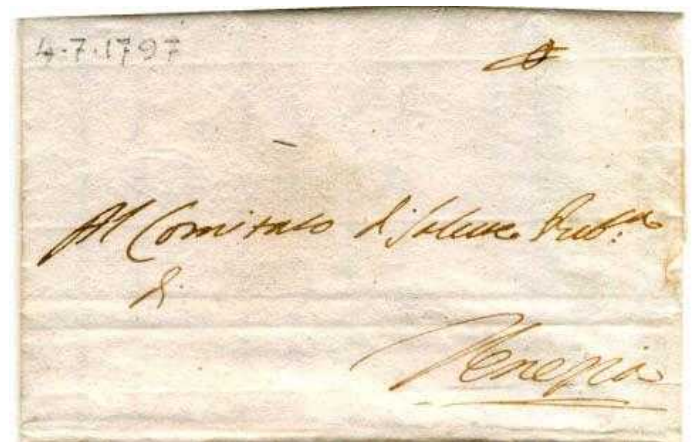 4.7.1797
Al Comitato di Salute Pub.ca
di
Venezia